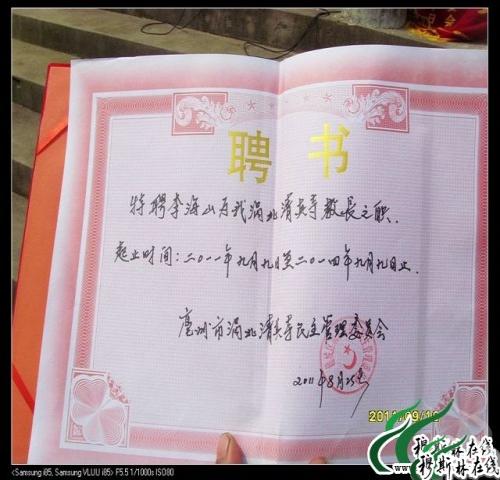 聘书
特聘李海山为我涡北清真寺教长之职.
起止时间：二〇一一年九月九日至二〇一四年九月九日止.
亳州市涡北清真寺民主管理委员会
2011年8月25号
2011/09/10
穆斯林在线
穆斯林在线
<Samsung i85, Samsung VLUU i85> F5.5 1/1000s ISO80